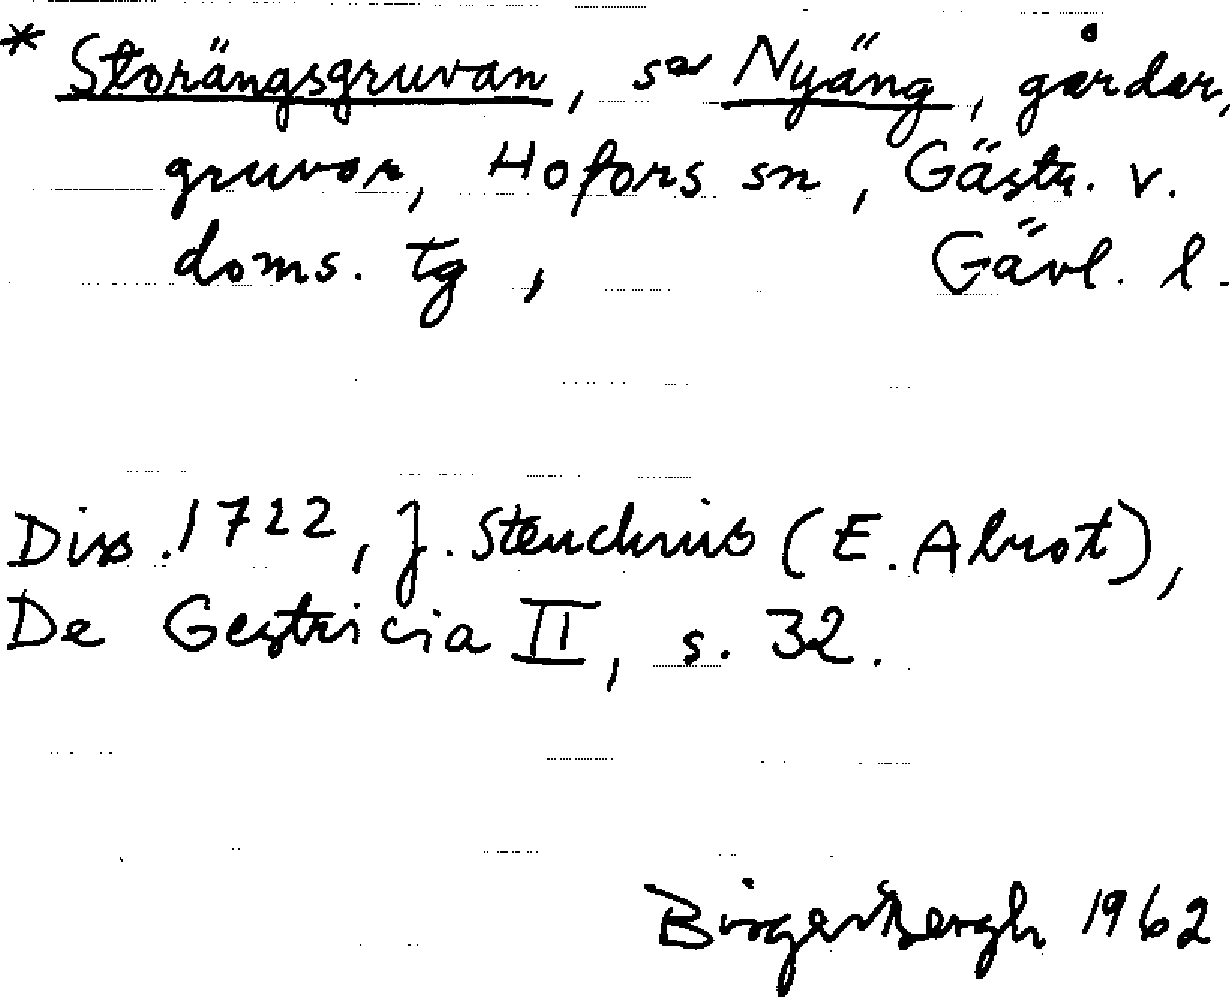 * Storängsgruvan, se Nyäng, gårdar,
gruvor, Hofors sn, Gästr. v.
doms. tg, Gävl. l.
Diss. 1722, J. Steuchius (E. Abrot),
De Gestricia II, s. 32.
Birger Bergh 1962